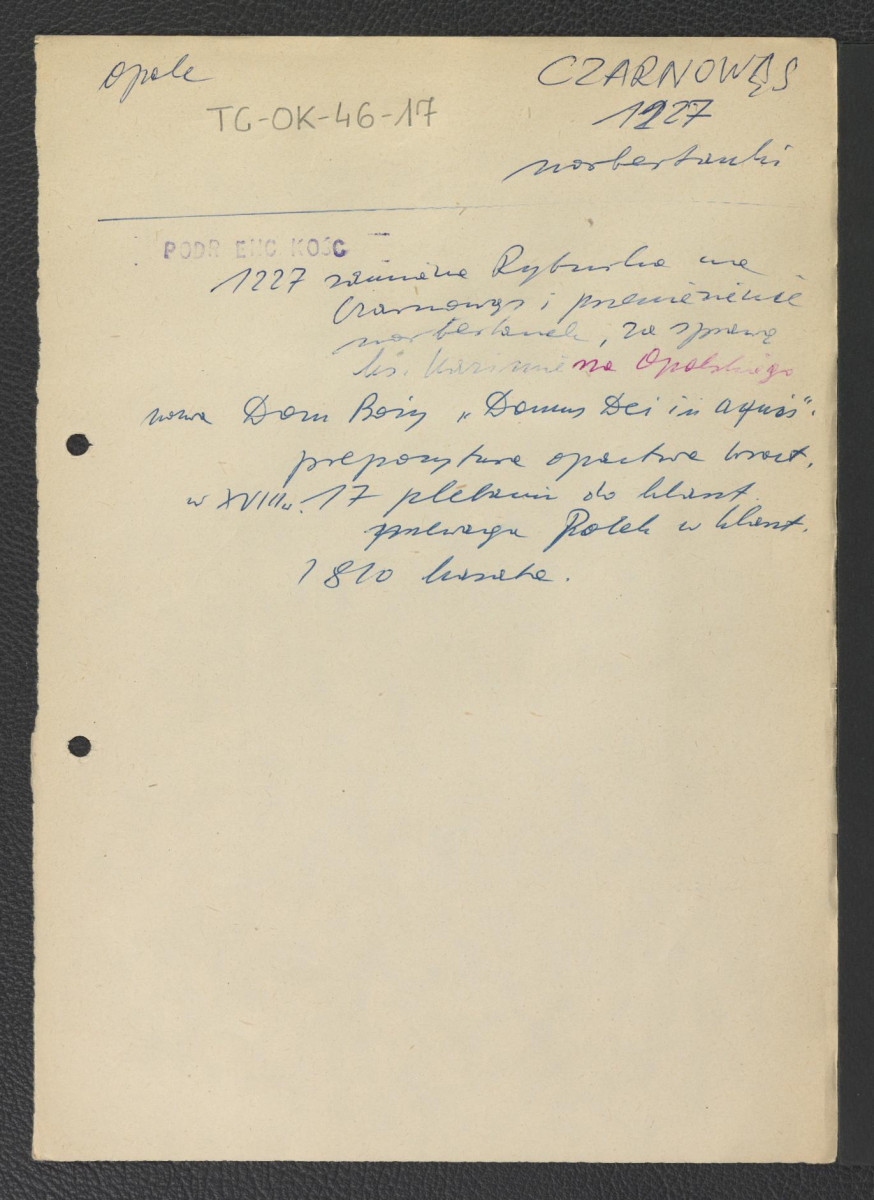 Opole
CZARNOWĄS
TG-OK-46-17
1227
norbertanki
PODR ENC. KOŚC
1227 zamiana Rybnika na
Czarnowąs i przeniesienie
norbertanek, za sprawą
ks. Kazimierza Opolskiego
nowa Dom Boży „Domus Dei in aquis".
prepozytura opactwa wrocł.
w XVIII w. 17 plebanii do klaszt.
przewaga Polek w klaszt.
1810 kasata.